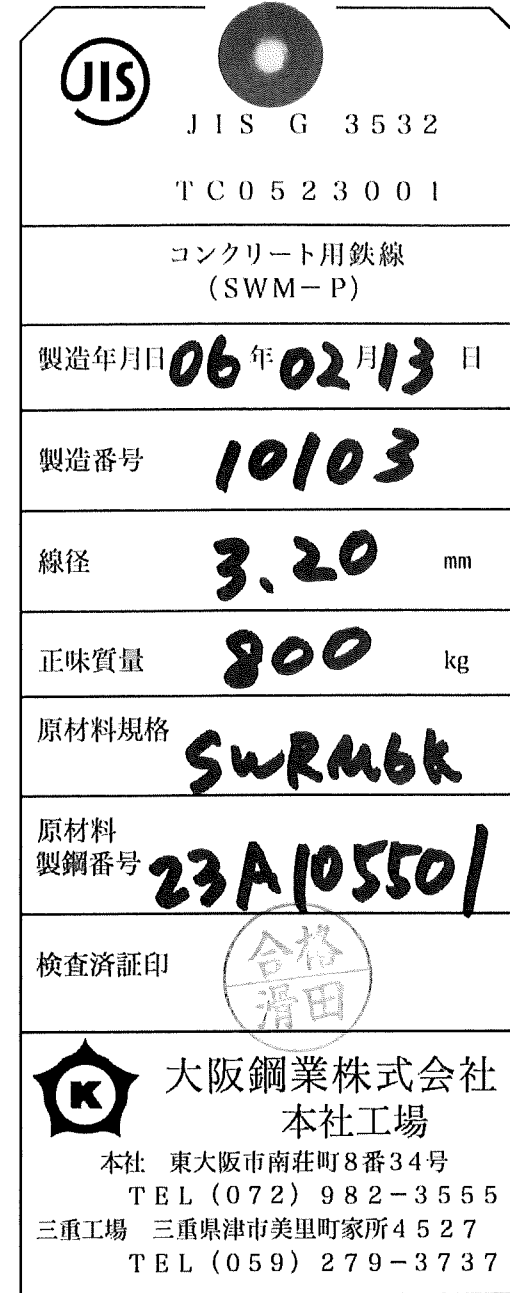 JIS
JIS G 3532
TC0523001
コンクリート用鉄線
(SWM-P)
製造年月日 06年02月13日
製造番号 10103
線径 3.20 mm
正味質量 800 kg
原材料規格 SWRM6K
原材料
製鋼番号 23A105501
検査済証印 合格
滑田
K
大阪鋼業株式会社
本社工場
本社 東大阪市南荘町8番34号
TEL (072) 982-3555
三重工場 三重県津市美里町家所4527
TEL (059) 279-3737